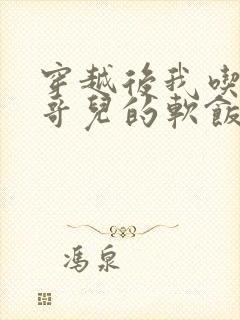 穿越後我喫
哥兒的軟飯
馮泉